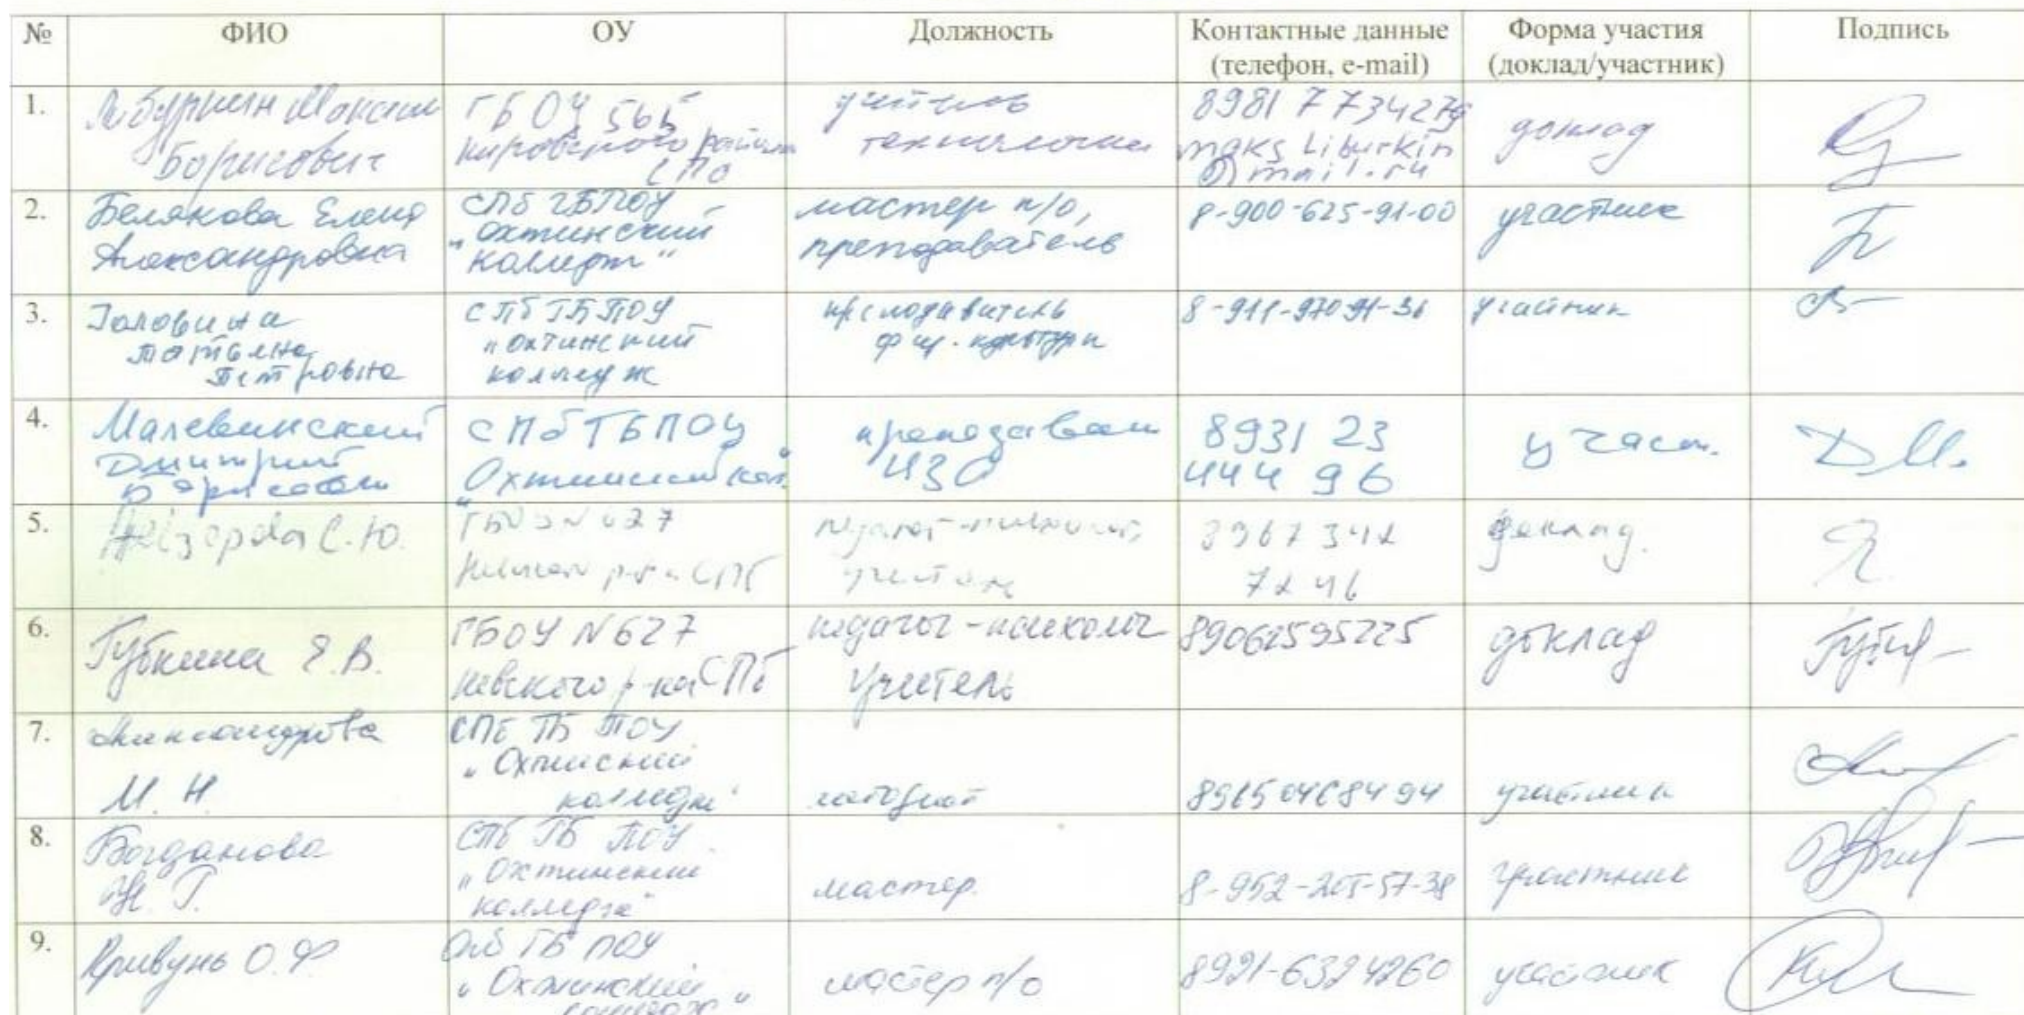 № ФИО ОУ Должность Контактные данные (телефон, e-mail) Форма участия (доклад/участник) Подпись
1. Либуркин Максим Борисович ГБОУ 565 Кировского района СПб учитель технологии 8981 7734279 maksliburkin@mail.ru доклад
2. Белякова Елена Александровна СПб ГБПОУ "Охтинский колледж" мастер п/о, преподаватель 8-900-625-91-00 участник
3. Головина Татьяна Петровна СПб ГБПОУ "Охтинский колледж преподаватель физ. культуры 8-911-970-91-36 участник
4. Малевинский Дмитрий Борисович СПб ГБПОУ "Охтинский кол." преподават ИЗО 8931 23 444 96 участ. Д.М.
5. С.Ю. ГБОУ N 627 Невского р-на СПб педагог-психолог, учитель 8967 342 7246 доклад.
6. Губкина Е.В. ГБОУ N 627 Невского р-на СПб педагог-психолог учитель 89062595225 доклад
7. Александрова М.Н. СПб ГБ ПОУ "Охтинский колледж" методист участник
8. Богданова Н.Г. СПб ГБ ПОУ "Охтинский колледж" мастер. 8-952-205-57-38 участник
9. Кривунь О.Ф. СПб ГБ ПОУ "Охтинский колледж" мастер п/о 8921-6324260 участник